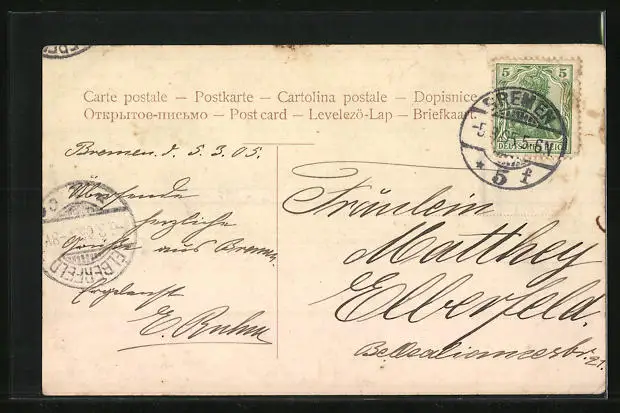 Carte postale — Postkarte — Cartolina postale — Dopisnice
Открытое-письмо — Post card — Levelező-Lap — Briefkaart
5
DEUTSCHES REICH
BREMEN
5 f
Bremen d. 5.3.05.
herzliche
Grüße aus Bremen
Ergebenst
E.
ELBERFELD
Fräulein
Matthey
Elberfeld.
Belleallianceestr. 21.